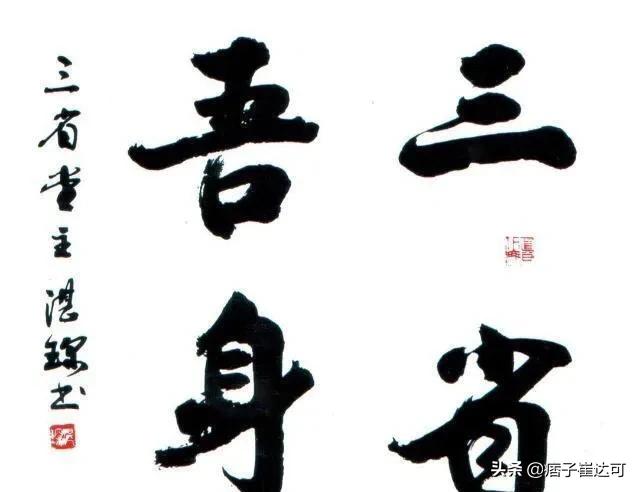 三省
吾身
三省堂主湛书
头条 @痞子崔达可